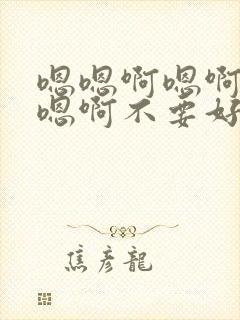 嗯嗯啊嗯啊
嗯啊不要好
焦彦龍